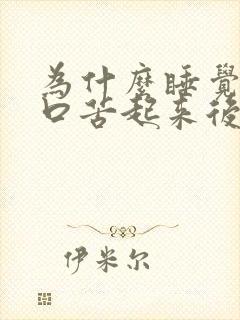 為什麼睡覺
口苦起来後
伊米尔